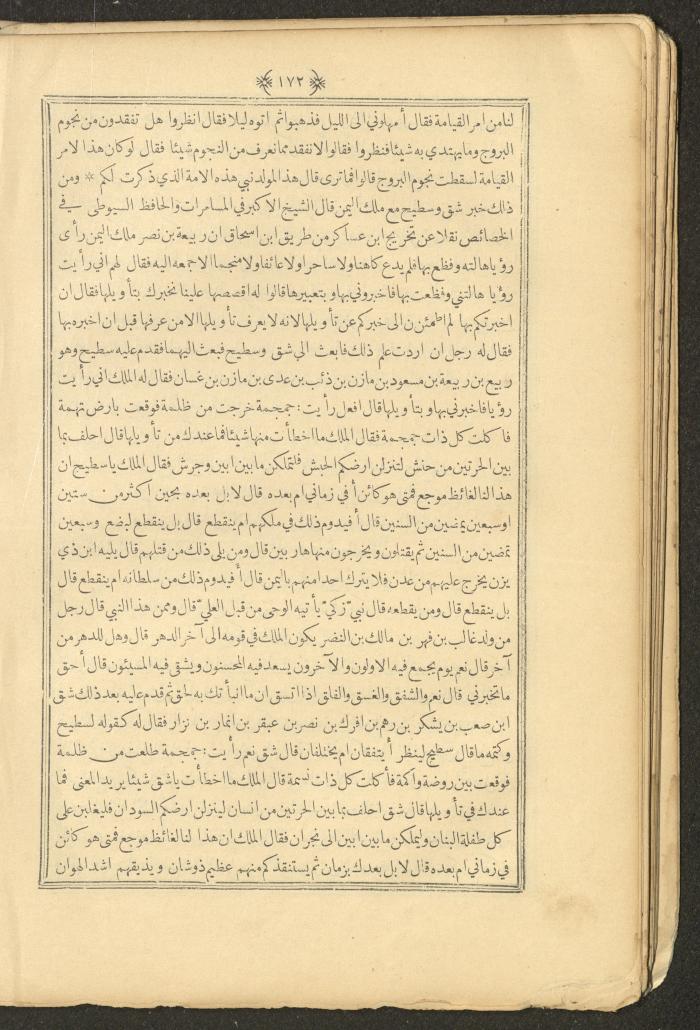 ﴿ ١٧٢ ﴾
لنا من امر القيامة فقال أمهلوني الى الليل فذهبوا ثم اتوه ليلا فقال انظروا هل تفقدون من نجوم
البروج وما يهتدي به شيئا فنظروا فقالوا لا نفقد مما نعرف من النجوم شيئا فقال لو كان هذا لامر
القيامة لسقطت نجوم البروج قالوا فما ترى قال هذا المولد نبي هذه الامة الذي ذكرت لكم * ومن
ذلك خبر شق وسطيح مع ملك اليمن قال الشيخ الاكبر في المسامرات والحافظ السيوطى في
الخصائص نقلا عن تخريج ابن عساكر من طريق ابن اسحاق ان ربيعة بن نصر ملك اليمن رأى
رؤيا هالته وفظع بها فلم يدع كاهنا ولا ساحرا ولا عائفا ولا منجما الا جمعه اليه فقال لهم اني رأيت
رؤيا هالتني وفظعت بها فاخبروني بها وبتعبيرها قالوا له اقصصها علينا نخبرك بتأويلها فقال ان
اخبرتكم بها لم اطمئن الى خبركم عن تأويلها لانه لا يعرف تأويلها الا من عرفها قبل ان اخبره بها
فقال له رجل ان اردت علم ذلك فابعث الي شق وسطيح فبعث اليهما فقدم عليه سطيح وهو
ربيع بن ربيعة بن مسعود بن مازن بن ذئب بن عدى بن مازن بن غسان فقال له الملك اني رأيت
رؤيا فاخبرني بها وبتأويلها قال افعل رأيت: جمجمة خرجت من ظلمة فوقعت بارض تهمة
فاكلت كل ذات جمجمة فقال الملك ما اخطأت منها شيئا فما عندك من تأويلها قال احلف بما
بين الحرتين من حنش لتنزلن ارضكم الحبش فلتملكن ما بين ابين وجرش فقال الملك يا سطيح ان
هذا لنا لغائظ موجع فمتى هو كائن أفي زماني ام بعده قال لا بل بعده بحين اكثر من ستين
او سبعين يمضين من السنين قال أفيدوم ذلك في ملكهم ام ينقطع قال بل ينقطع لبضع وسبعين
تمضين من السنين ثم يقتلون ويخرجون منها هاربين قال ومن يلى ذلك من قتلهم قال يليه ابن ذي
يزن يخرج عليهم من عدن فلا يترك احدا منهم باليمن قال أفيدوم ذلك من سلطانه ام ينقطع قال
بل ينقطع قال ومن يقطعه قال نبيّ زكيّ يأتيه الوحى من قبل العليّ قال وممن هذا النبي قال رجل
من ولد غالب بن فهر بن مالك بن النضر يكون الملك في قومه الى آخر الدهر قال وهل للدهر من
آخر قال نعم يوم يجمع فيه الاولون والآخرون يسعد فيه المحسنون ويشقى فيه المسيئون قال أحق
ما تخبرني قال نعم والشفق والغسق والفلق اذا اتسق ان ما انبأتك به لحق ثم قدم عليه بعد ذلك شق
ابن صعب بن يشكر بن رهم بن افرك بن نصر بن عبقر بن انمار بن نزار فقال له كقوله لسطيح
وكتمه ما قال سطيح لينظر أيتفقان ام يختلفان قال شق نعم رأيت: جمجمة طلعت من ظلمة
فوقعت بين روضة وأكمة فأكلت كل ذات نسمة قال الملك ما اخطأت يا شق شيئا يريد المعنى فما
عندك في تأويلها قال شق احلف بما بين الحرتين من انسان لينزلن ارضكم السودان فليغلبن على
كل طفلة البنان وليملكن ما بين ابين الى نجران فقال الملك ان هذا لنا لغائظ موجع فمتى هو كائن
في زماني ام بعده قال لا بل بعدك بزمان ثم يستنقذكم منهم عظيم ذوشان ويذيقهم اشد الهوان